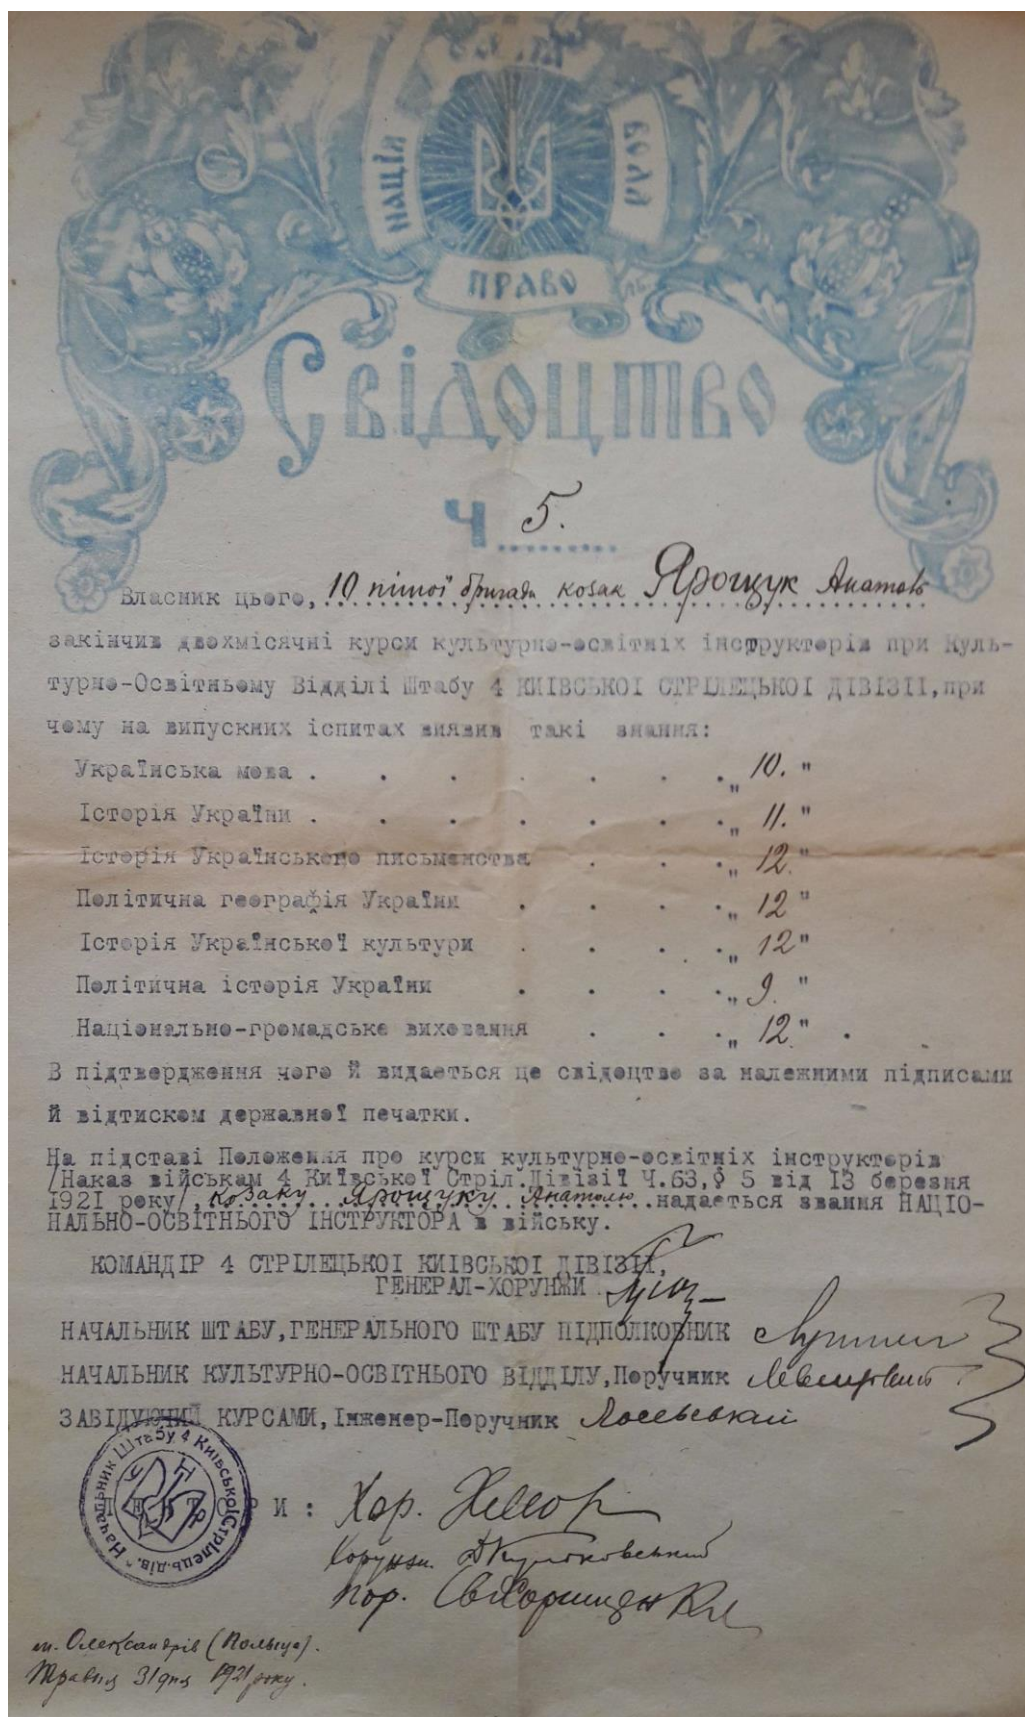 НАЦІЯ
ВОЛЯ
ПРАВО
Свідоцтво
Ч 5.
Власник цього, 10 пішої бригади козак Ярощук Анатоль
закінчив двохмісячні курси культурно-освітніх інструкторів при Куль-
турно-Освітньому Відділі Штабу 4 КИІВСЬКОІ СТРІЛЕЦЬКОІ ДІВІЗІІ, при
чому на випускних іспитах виявив такі знання:
Українська мова . . . . . . . „ 10. "
Історія України . . . . . . . „ 11. "
Історія Українського письменства . . . „ 12. "
Політична географія України . . . . „ 12 "
Історія Української культури . . . . „ 12 "
Політична історія України . . . . „ 9. "
Національно-громадське виховання . . . „ 12. " .
В підтвердження чого й видається це свідоцтво за належними підписами
й відтиском державної печатки.
На підставі Положення про курси культурно-освітніх інструкторів
/Наказ військам 4 Київської Стріл.Дівізії Ч.63,§ 5 від 13 березня
1921 року/, козаку Ярощуку Анатолю надається звання НАЦІО-
НАЛЬНО-ОСВІТНЬОГО ІНСТРУКТОРА в війську.
КОМАНДІР 4 СТРІЛЕЦЬКОІ КИІВСЬКОІ ДІВІЗІІ,
ГЕНЕРАЛ-ХОРУНЖИ
НАЧАЛЬНИК ШТАБУ, ГЕНЕРАЛЬНОГО ШТАБУ ПІДПОЛКОВНИК
НАЧАЛЬНИК КУЛЬТУРНО-ОСВІТНЬОГО ВІДДІЛУ, Поручник
ЗАВІДУЮЧИЙ КУРСАМИ, Інженер-Поручник Лосевський
Начальник Штабу 4 Київської Стрілець. дів.
У Н Р
И :
Хор.
Хорунж.
Пор.
м. Олександрів (Польща).
Травня 31 дня 1921 року.